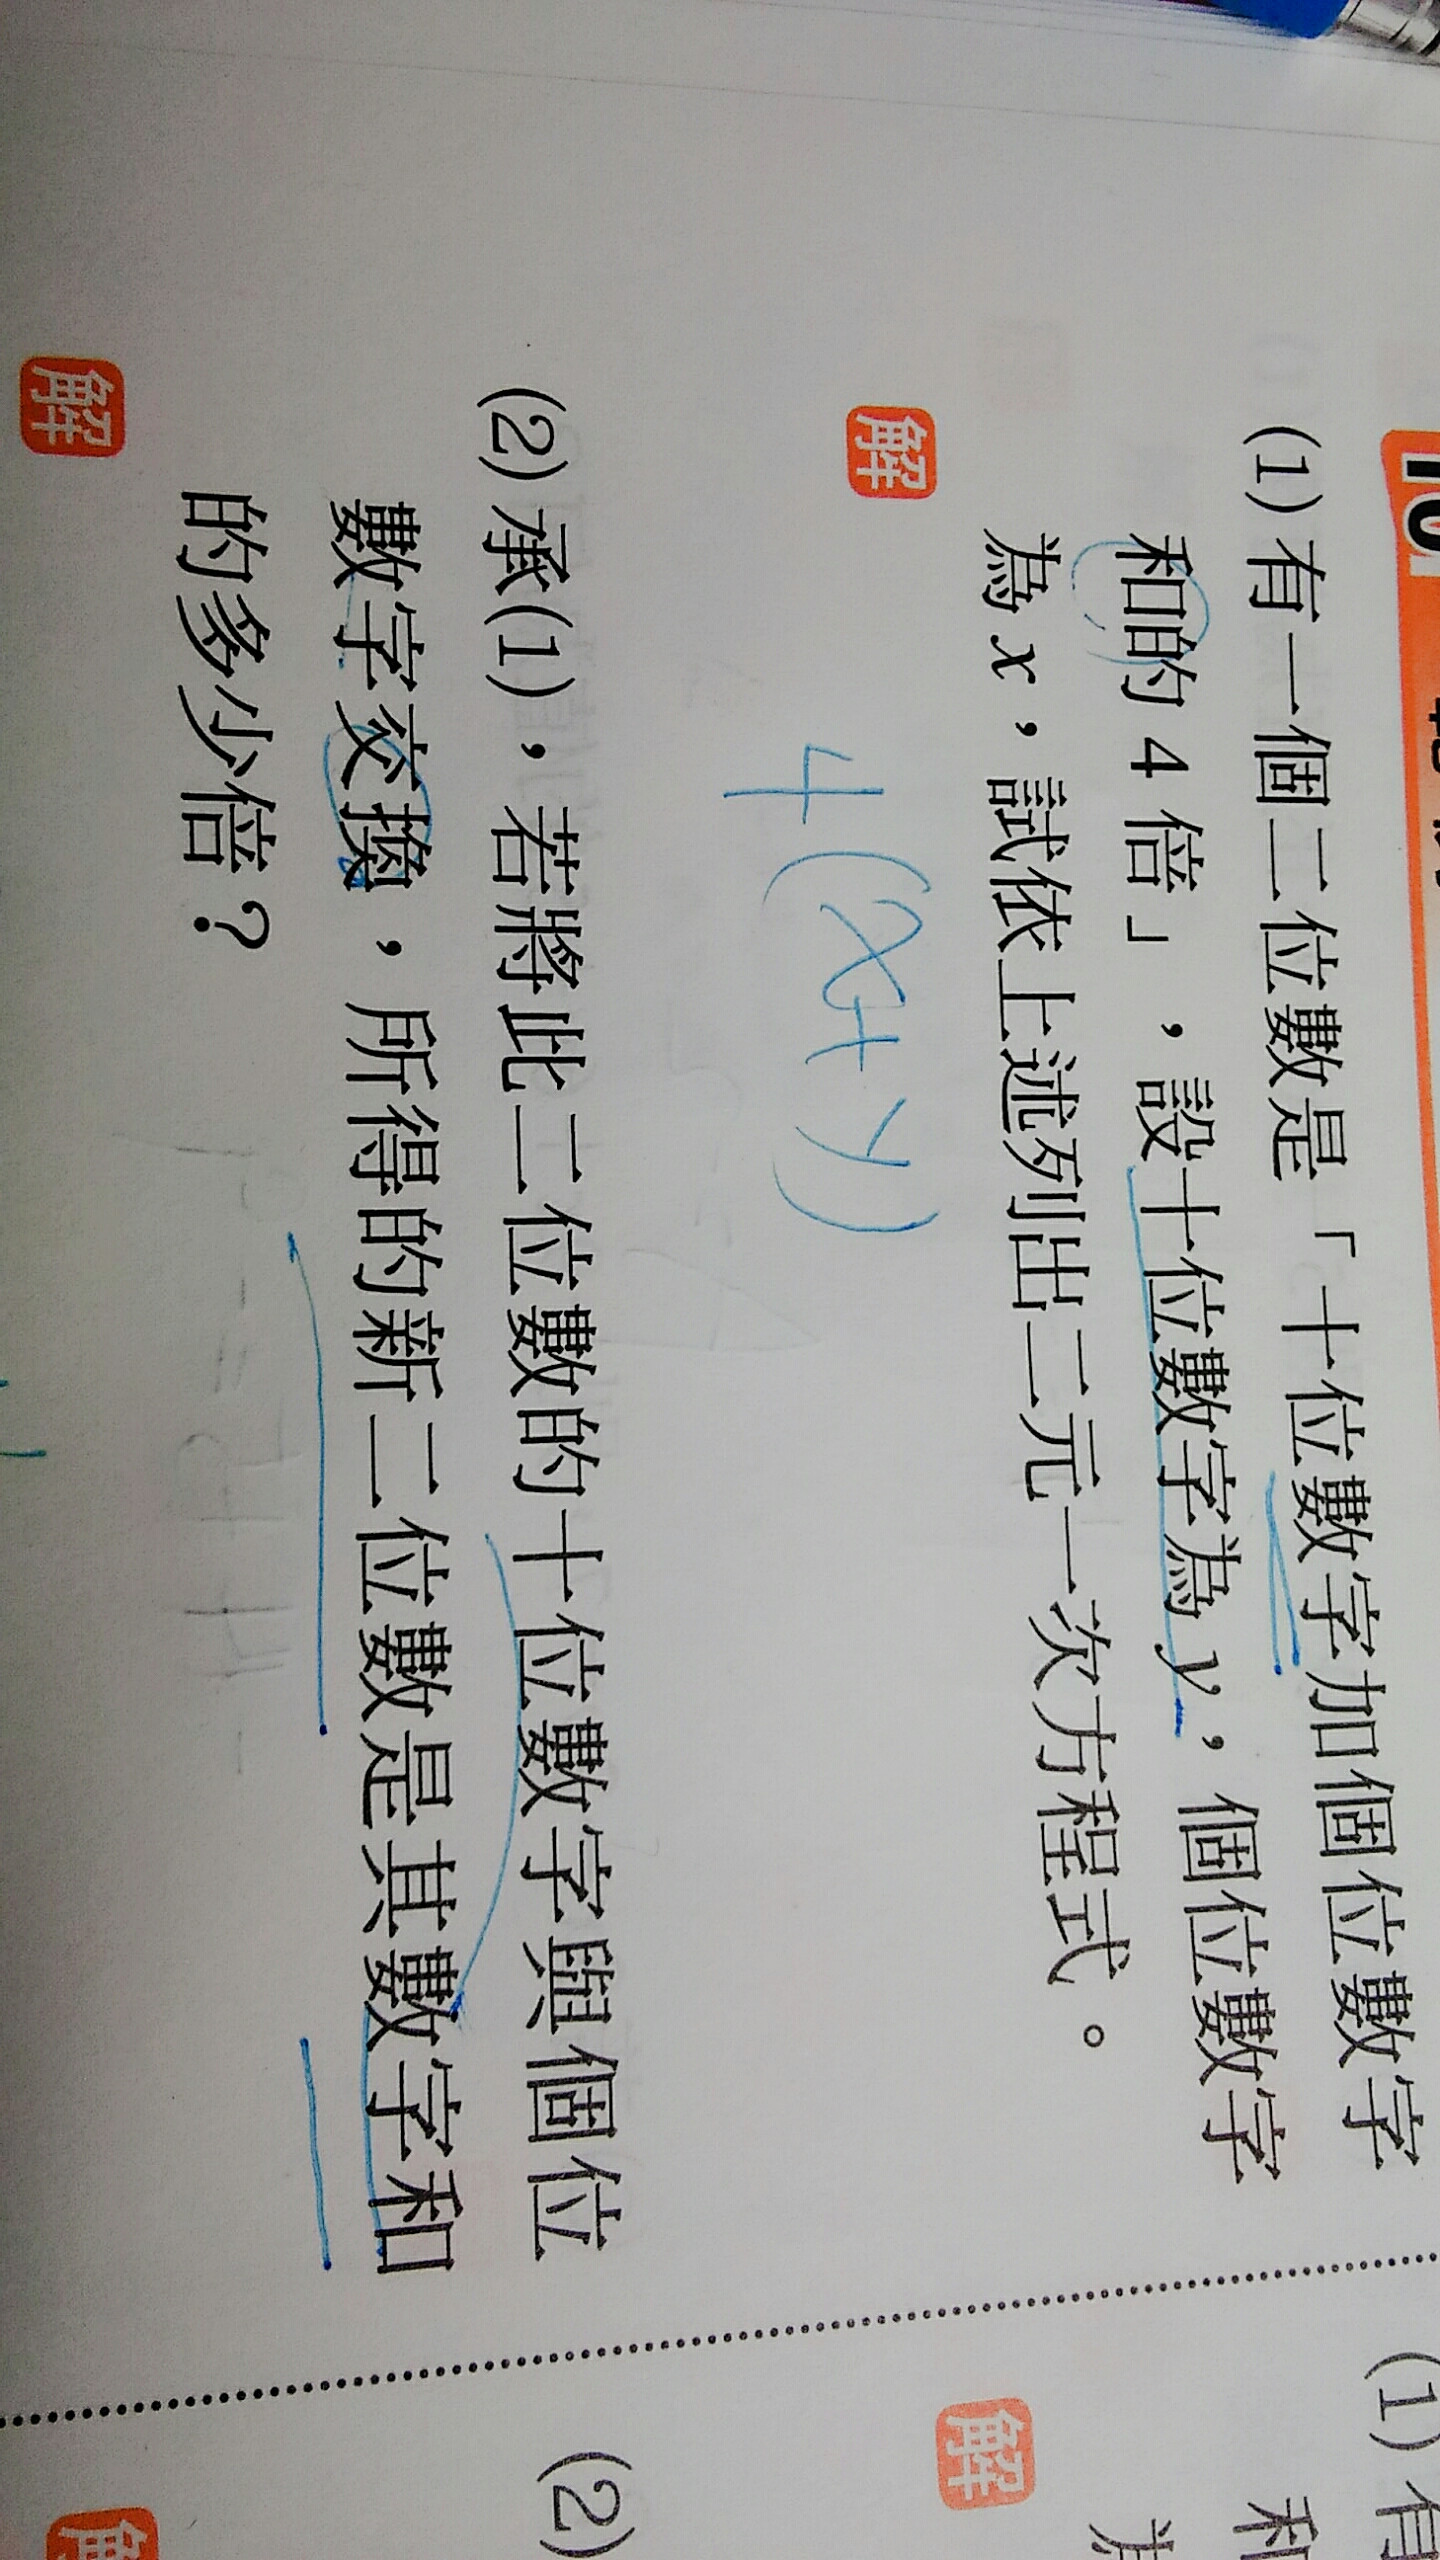 10
(1) 有一個二位數是「十位數字加個位數字
和的 4 倍」，設十位數字為 y，個位數字
為 x，試依上述列出二元一次方程式。
解
4(x+y)
(2) 承(1)，若將此二位數的十位數字與個位
數字交換，所得的新二位數是其數字和
的多少倍？
解
(1) 有
和
解
(2)
解